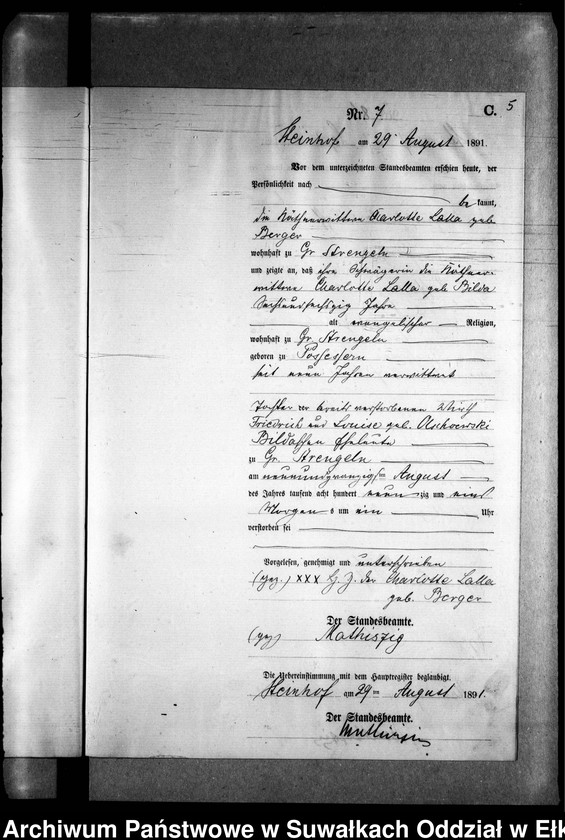 5
Nr. 7 C.
Steinhof am 29 August 1891.
Vor dem unterzeichneten Standesbeamten erschien heute, der
Persönlichkeit nach
be kannt,
die Käthnerwittwe Charlotte Lalla geb
Berger
wohnhaft zu Gr Strengeln
und zeigte an, daß ihre Schwägerin die Käthner-
wittwe Charlotte Lalla geb Bilda
Sechsundsechszig Jahre
alt evangelischer Religion,
wohnhaft zu Gr Strengeln
geboren zu Possessern
seit neun Jahren verwittwet
Tochter der bereits verstorbenen Wirth
Friedrich und Louise geb. Olschewski
Bildaschen Eheleute
zu Gr. Strengeln
am neunundzwanzigsten August
des Jahres tausend acht hundert neun zig und eins
Morgen s um ein Uhr
verstorben sei
Vorgelesen, genehmigt und unterschrieben
(gez.) xxx H. Z. der Charlotte Lalla
geb. Berger
Der Standesbeamte.
(gez) Mathiszig
Die Uebereinstimmung mit dem Hauptregister beglaubigt.
Steinhof am 29ten August 1891.
Der Standesbeamte.
Archiwum Państwowe w Suwałkach Oddział w Ełk